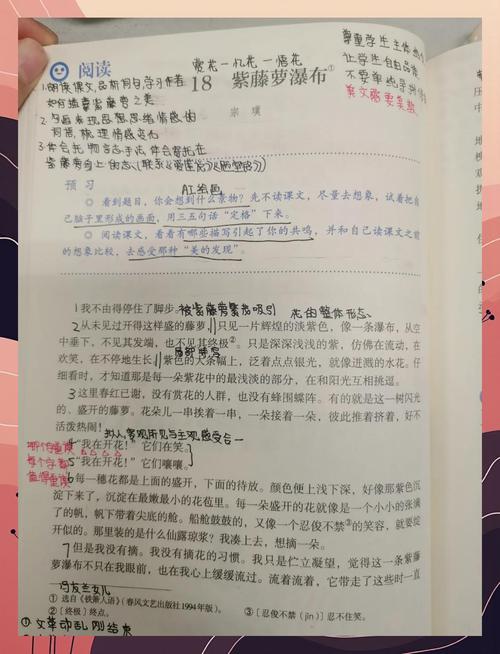 阅读
赏花一忆花一悟花
18 紫藤萝瀑布①
宗璞
尊重学生主体
让学生自由品
不要单纯
美文需要美教
1.朗读课文,品析词句,学习作者
如何描摹紫藤萝之美
2.
词语,梳理情感变化
3.体会托物言志手法,体会寄托在
紫藤萝身上
预习
AI绘画
◎ 看到题目,你会想到什么景物?先不读课文,尽量去想象,试着把自
己脑子里形成的画面,用三五句话“定格”下来。
◎ 阅读课文,看看有哪些描写引起了你的共鸣,并和自己读课文之前
的想象比较,去感受那种“美的发现”。
1我不由得停住了脚步。被紫藤萝瀑布吸引 花的整体形态
2从未见过开得这样盛的藤萝,只见一片辉煌的淡紫色,像一条瀑布,从空
中垂下,不见其发端,也不见其终极②。只是深深浅浅的紫,仿佛在流动,在
欢笑,在不停地生长。紫色的大条幅上,泛着点点银光,就像迸溅的水花。仔
细看时,才知道那是每一朵紫花中的最浅淡的部分,在和阳光互相挑逗。
3这里春红已谢,没有赏花的人群,也没有蜂围蝶阵。有的就是这一树闪光
的、盛开的藤萝。花朵儿一串挨着一串,一朵接着一朵,彼此推着挤着,好不
活泼热闹!
拟人,客观所见与主观感受合一
4“我在开花!”它们在笑。
5“我在开花!”它们嚷嚷。
每个字都
值得重读
6每一穗花都是上面的盛开、下面的待放。颜色便上浅下深,好像那紫色沉
淀下来了,沉淀在最嫩最小的花苞里。每一朵盛开的花就像是一个小小的张满
了的帆,帆下带着尖底的舱。船舱鼓鼓的,又像一个忍俊不禁③的笑容,就要绽
开似的。那里装的是什么仙露琼浆?我凑上去,想摘一朵。
7但是我没有摘。我没有摘花的习惯。我只是伫立凝望,觉得这一条紫藤
萝瀑布不只在我眼前,也在我心上缓缓流过。流着流着,它带走了这些时一直
冯友兰女儿
① 选自《铁箫人语》(春风文艺出版社1994年版)。
②〔终极〕终点。
③〔忍俊不禁(jīn)〕忍不住笑。
①文革动乱刚结束